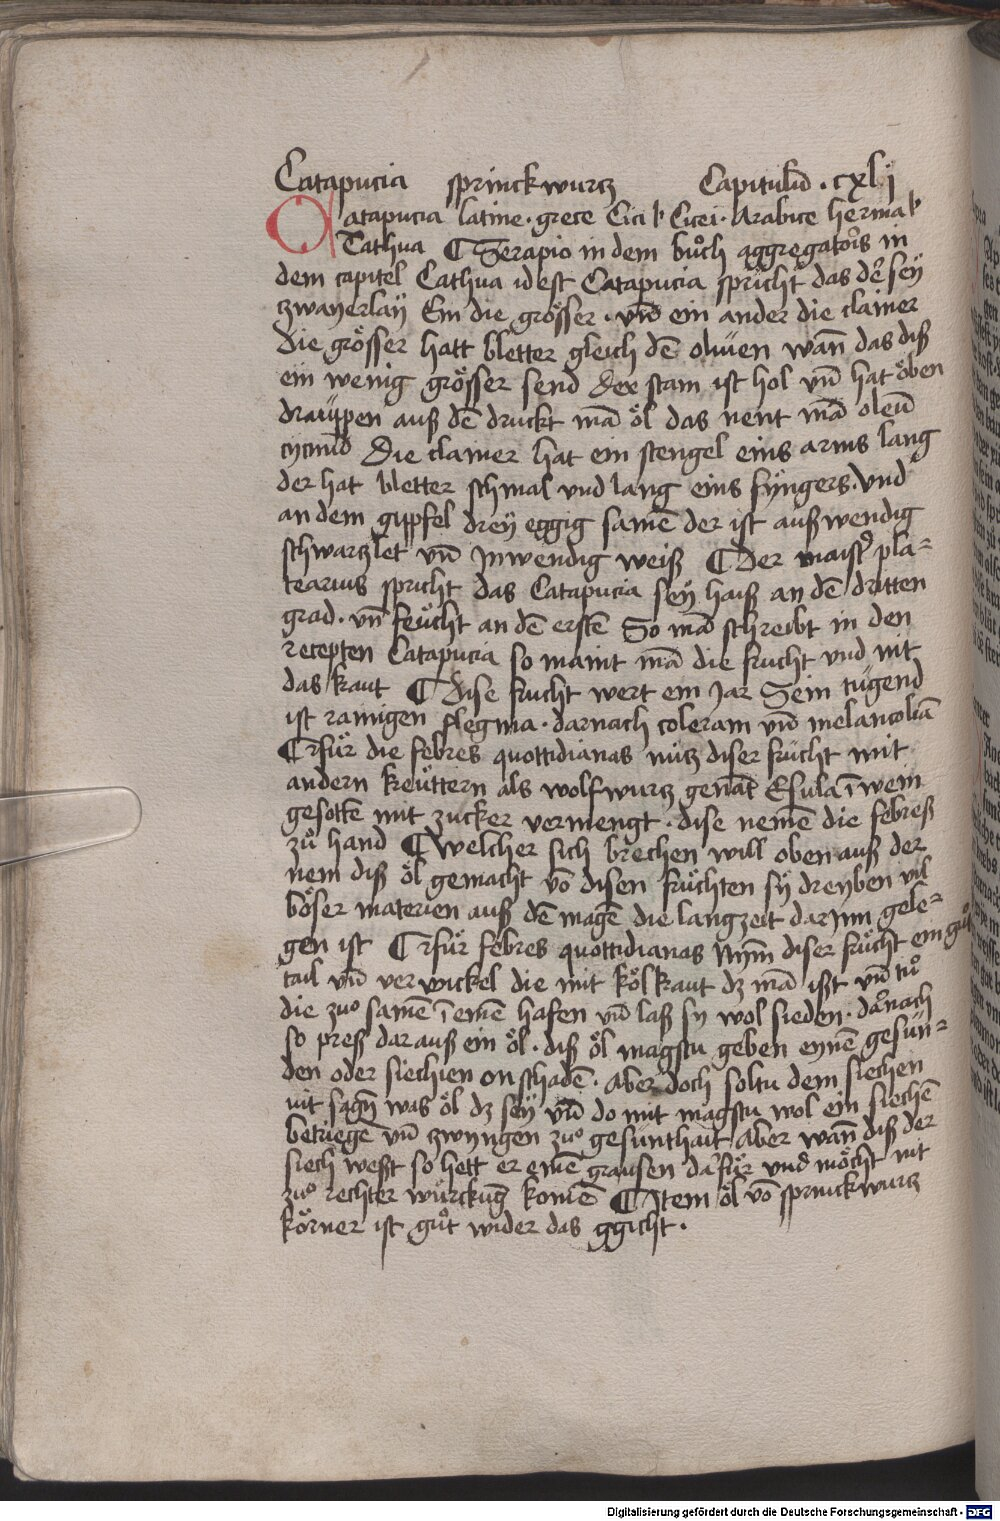 Catapucia sprinckwurcz Capitulū . cxlij
Catapucia latine . grece Cici ł Cicei . Arabice herma ł
Tathua ¶ Serapio in dem bůch aggregatoris in
dem capitel Cathua idest Catapucia spricht das der sey
zwayerlaÿ Ein die grösser . vnd ein ander die clainer
die grösser hatt bletter gleich dē oliuen wañ das diß
ein wenig grösser send Der stam ist hol vñ hat oben
drauppen auß dē druckt mā öl das nent mā oleū
cycinū Die clainer hat ein stengel eins arms lang
der hat bletter schmal vnd lang eins fyngers . vnd
an dem gypfel dreÿ eggig samē der ist außwendig
schwartzlet vñ Jnwendig weiß ¶ Der maister pla-
tearius spricht das Catapucia seÿ haiß an dē dritten
grad . vñ feücht an dē erstē So mā schreibt in den
recepten Catapucia so maint mā die frucht vnd nit
das kraut ¶ Dise frucht wert ein Jar Sein tugend
ist rainigen flegma . darnach coleram vñ melancoliā
¶ Für die febres quottidianas nütz diser frücht mit
andern kreüttern als wolfwurtz genāt Esula ī wein
gesottē mit zucker vermengt . dise nemē die febreß
zů hand ¶ Welcher sich brechen will oben auß der
nem diß öl gemacht vō disen früchten sÿ dreyben vil
böser materien auß dē magē die langzeit darJnn gele-
gen ist ¶ Für febres quottidianas Nym̄ diser frücht ein gůt
tail vñ verwickel die mit kölkraut dz mā ißt vñ tů
die zuo samē ī einē hafen vñ laß sy wol sieden . darnach
so preß darauß ein öl . diß öl magstu geben eynē gesun-
den oder siechen on schadē . Aber doch soltu dem siechen
nit sagn̄ was öl dz seÿ vñ do mit magstu wol ein siechē
betriegē vñ zwyngen zuo gesunthait Aber wañ diß der
siech weßt so hett er einē grausen dafür vnd möcht nit
zuo rechter würckūg komē ¶ Item öl vō sprinckwurtz
körner ist gůt wider das ggicht .
Digitalisierung gefördert durch die Deutsche Forschungsgemeinschaft - DFG